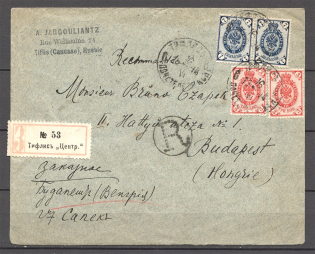 A. JARGOULIANTZ
Rue Wellamine, 74
Tiflis (Caucase), Russie
Recommandée
Monsieur Bruno Czapek
II. Hattyu utcza № 1.
Budapest
(Hongrie)
№ 53
Тифлисъ „Центр.“
Заказное
Будапешт (Венгрія)